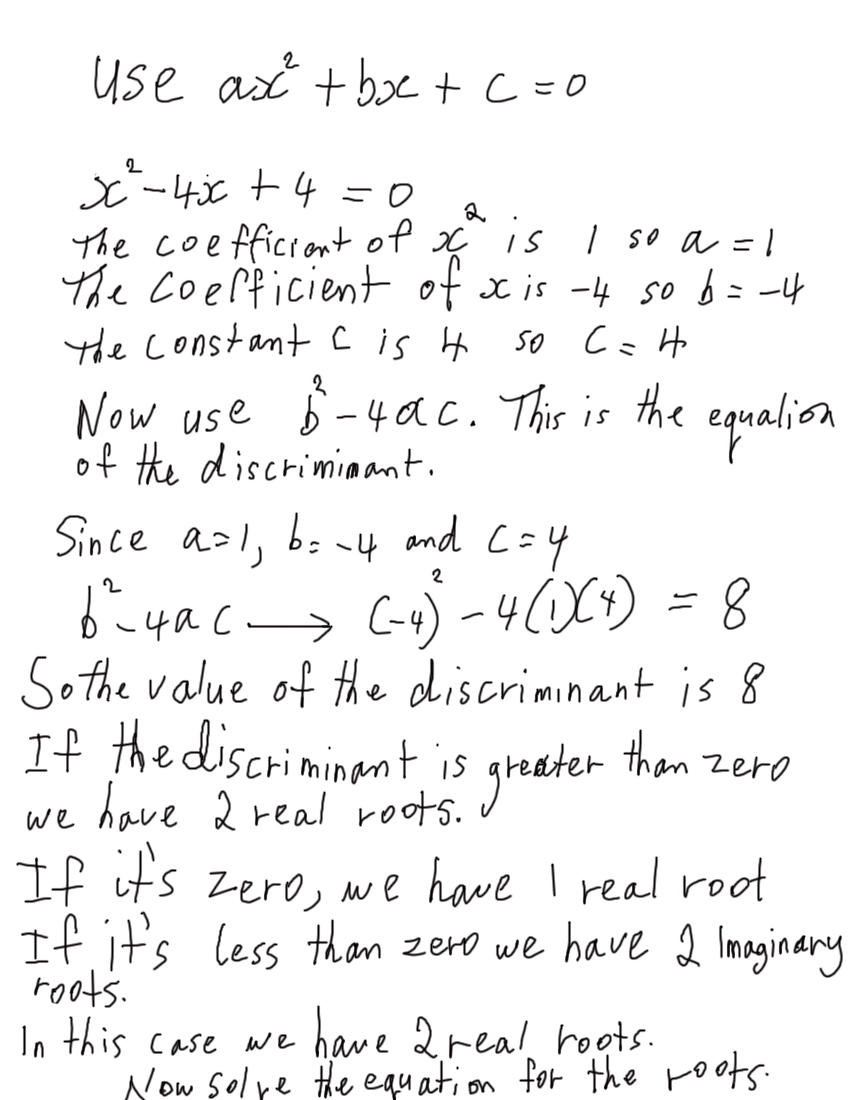 Use ax² + bx + c = 0
x² - 4x + 4 = 0
The coefficient of x² is 1 so a = 1
The coefficient of x is -4 so b = -4
The constant c is 4 so c = 4
Now use b² - 4ac. This is the equation
of the discriminant.
Since a=1, b= -4 and c = 4
b² - 4ac ⟶ (-4)² - 4(1)(4) = 8
So the value of the discriminant is 8
If the discriminant is greater than zero
we have 2 real roots.
If it's zero, we have 1 real root
If it's less than zero we have 2 Imaginary
roots.
In this case we have 2 real roots.
Now solve the equation for the roots.